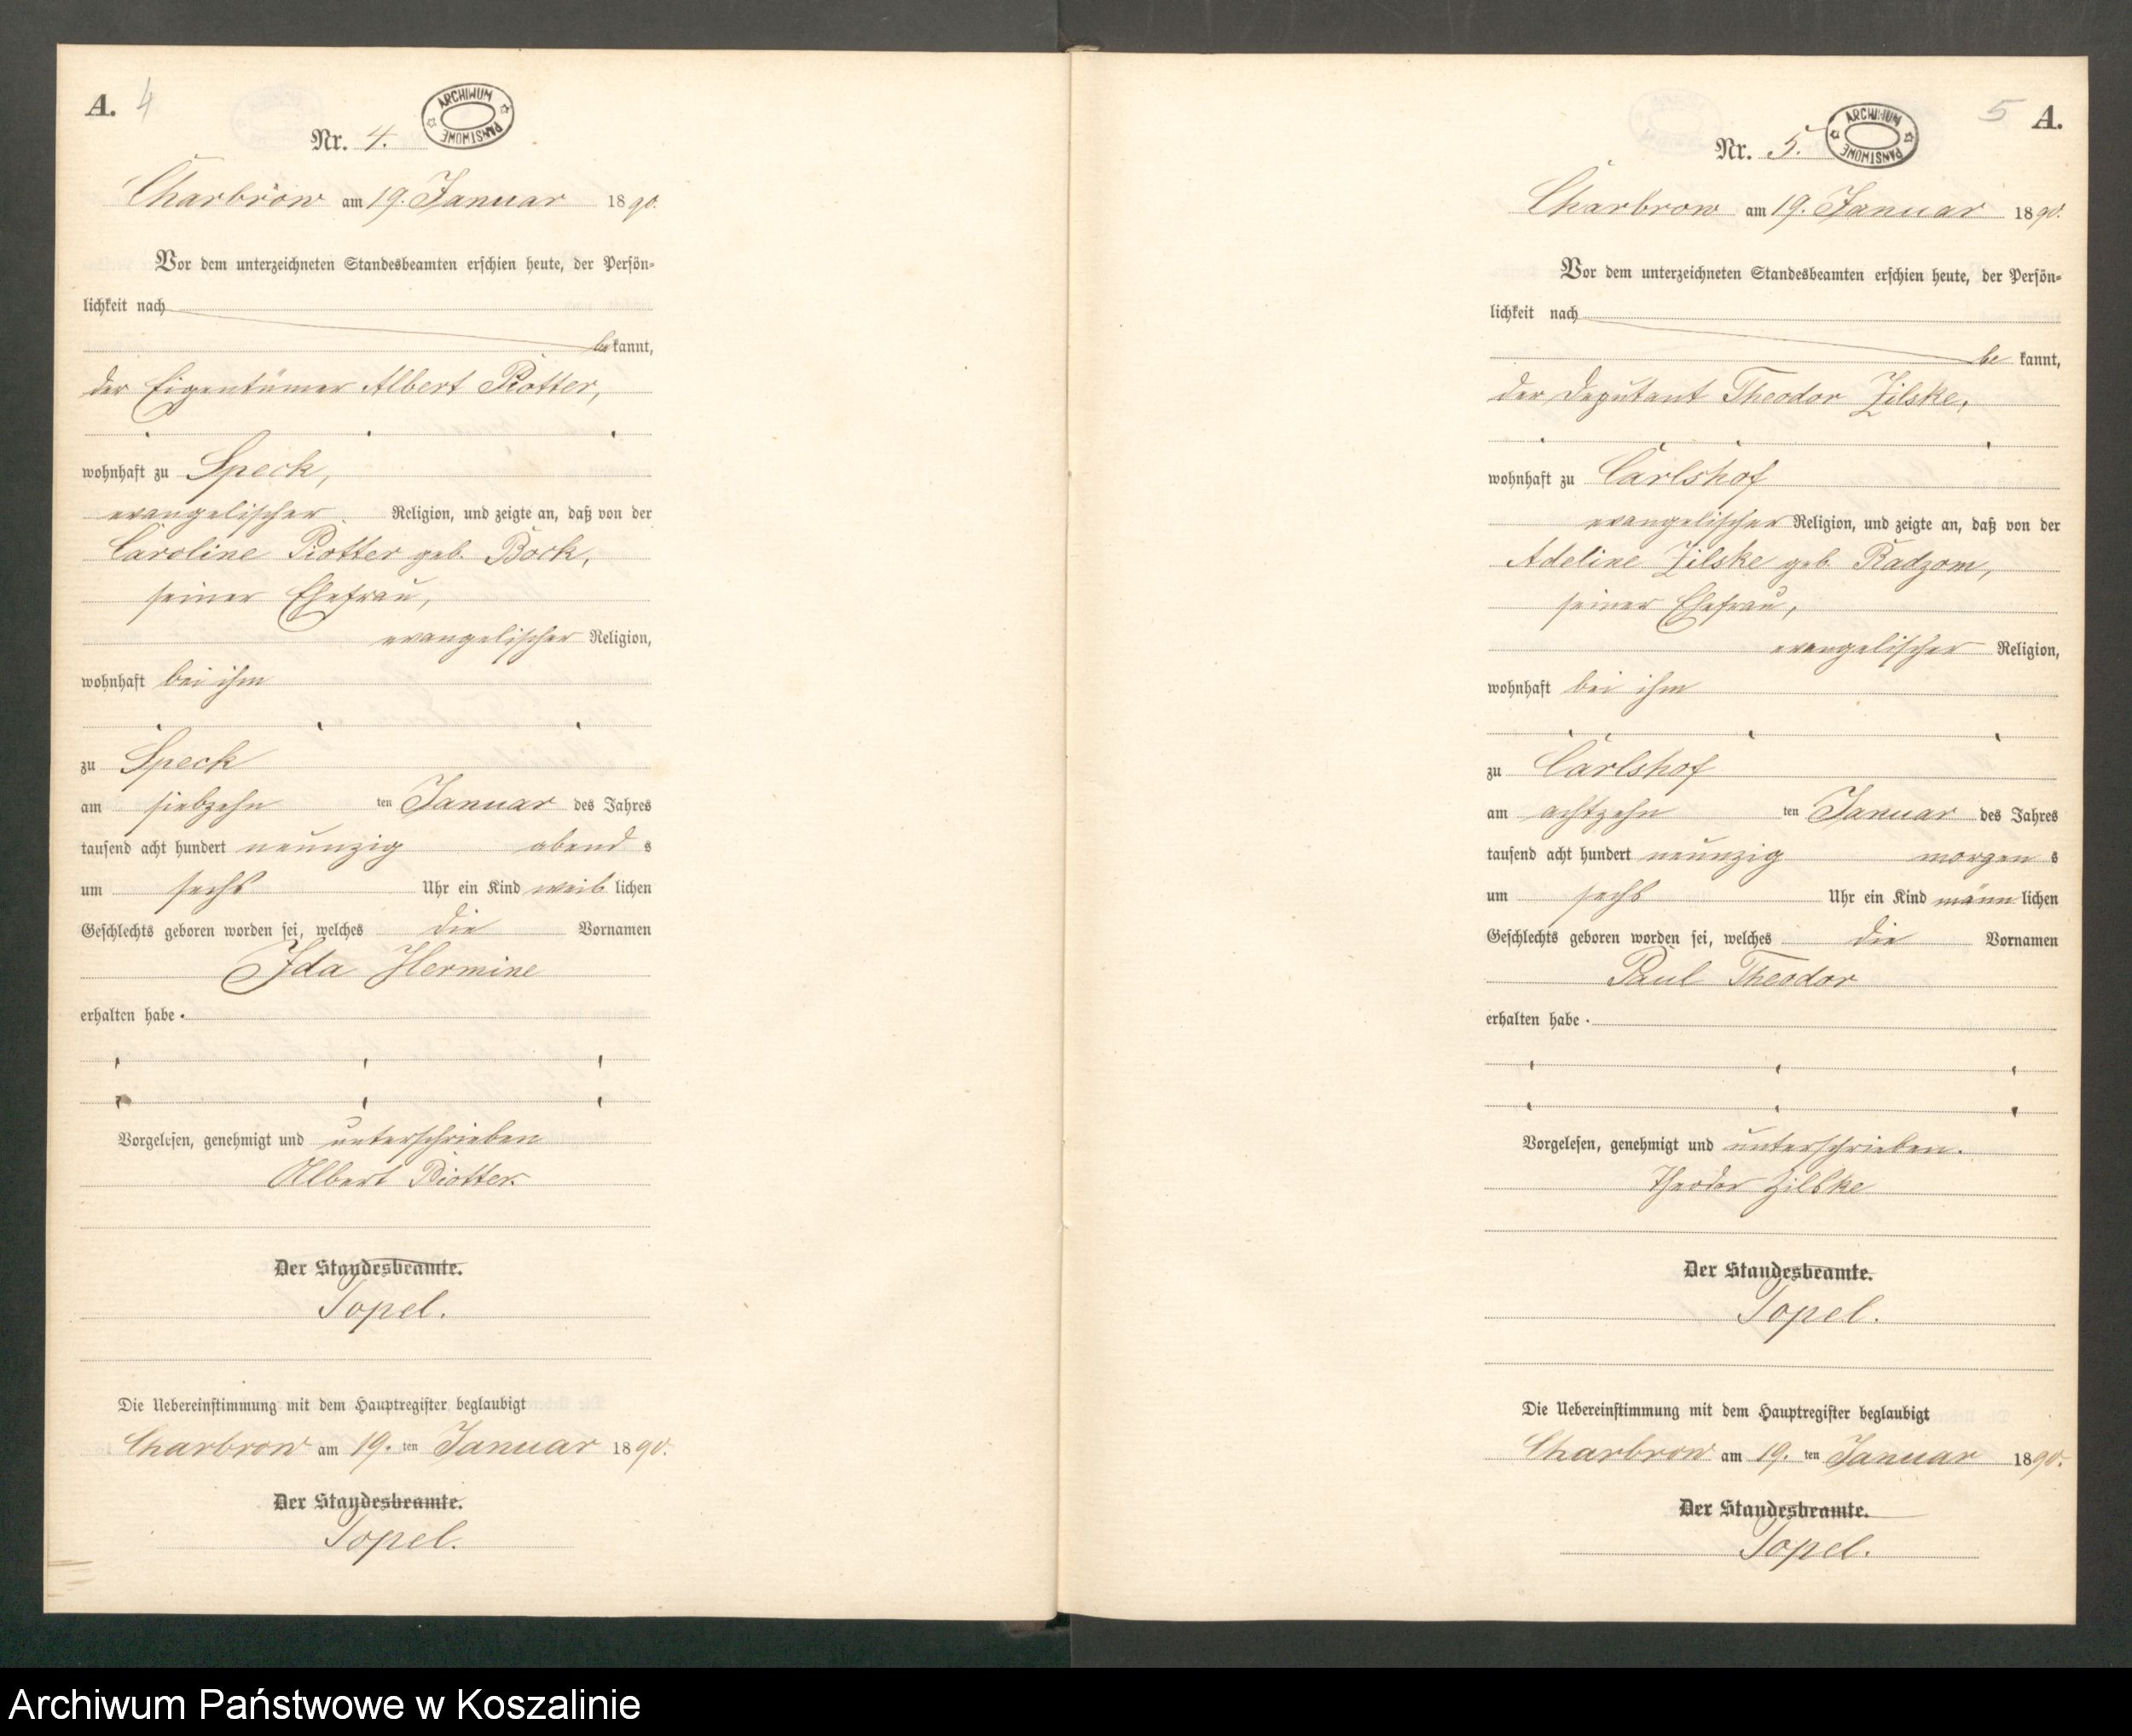 A. 4
ARCHIWUM PAŃSTWOWE
Nr. 4.
Charbrow am 19. Januar 1890.
Vor dem unterzeichneten Standesbeamten erschien heute, der Persön-
lichkeit nach
bekannt,
der Eigentümer Albert Piotter,
wohnhaft zu Speck,
evangelischer Religion, und zeigte an, daß von der
Caroline Piotter geb. Bock,
seiner Ehefrau,
evangelischer Religion,
wohnhaft bei ihm
zu Speck
am siebzehn ten Januar des Jahres
tausend acht hundert neunzig abend s
um sechs Uhr ein Kind weiblichen
Geschlechts geboren worden sei, welches die Vornamen
Ida Hermine
erhalten habe.
Vorgelesen, genehmigt und unterschrieben
Albert Piotter.
Der Standesbeamte.
Topel.
Die Uebereinstimmung mit dem Hauptregister beglaubigt
Charbrow am 19. ten Januar 1890.
Der Standesbeamte.
Topel.
5 A.
ARCHIWUM PAŃSTWOWE
Nr. 5.
Charbrow am 19. Januar 1890.
Vor dem unterzeichneten Standesbeamten erschien heute, der Persön-
lichkeit nach
be kannt,
der Deputant Theodor Zilske,
wohnhaft zu Carlshof
evangelischer Religion, und zeigte an, daß von der
Adeline Zilske geb. Radzom,
seiner Ehefrau,
evangelischer Religion,
wohnhaft bei ihm
zu Carlshof
am achtzehn ten Januar des Jahres
tausend acht hundert neunzig morgen s
um sechs Uhr ein Kind männlichen
Geschlechts geboren worden sei, welches die Vornamen
Paul Theodor
erhalten habe.
Vorgelesen, genehmigt und unterschrieben.
Theodor Zilske
Der Standesbeamte.
Topel.
Die Uebereinstimmung mit dem Hauptregister beglaubigt
Charbrow am 19. ten Januar 1890.
Der Standesbeamte.
Topel.
Archiwum Państwowe w Koszalinie